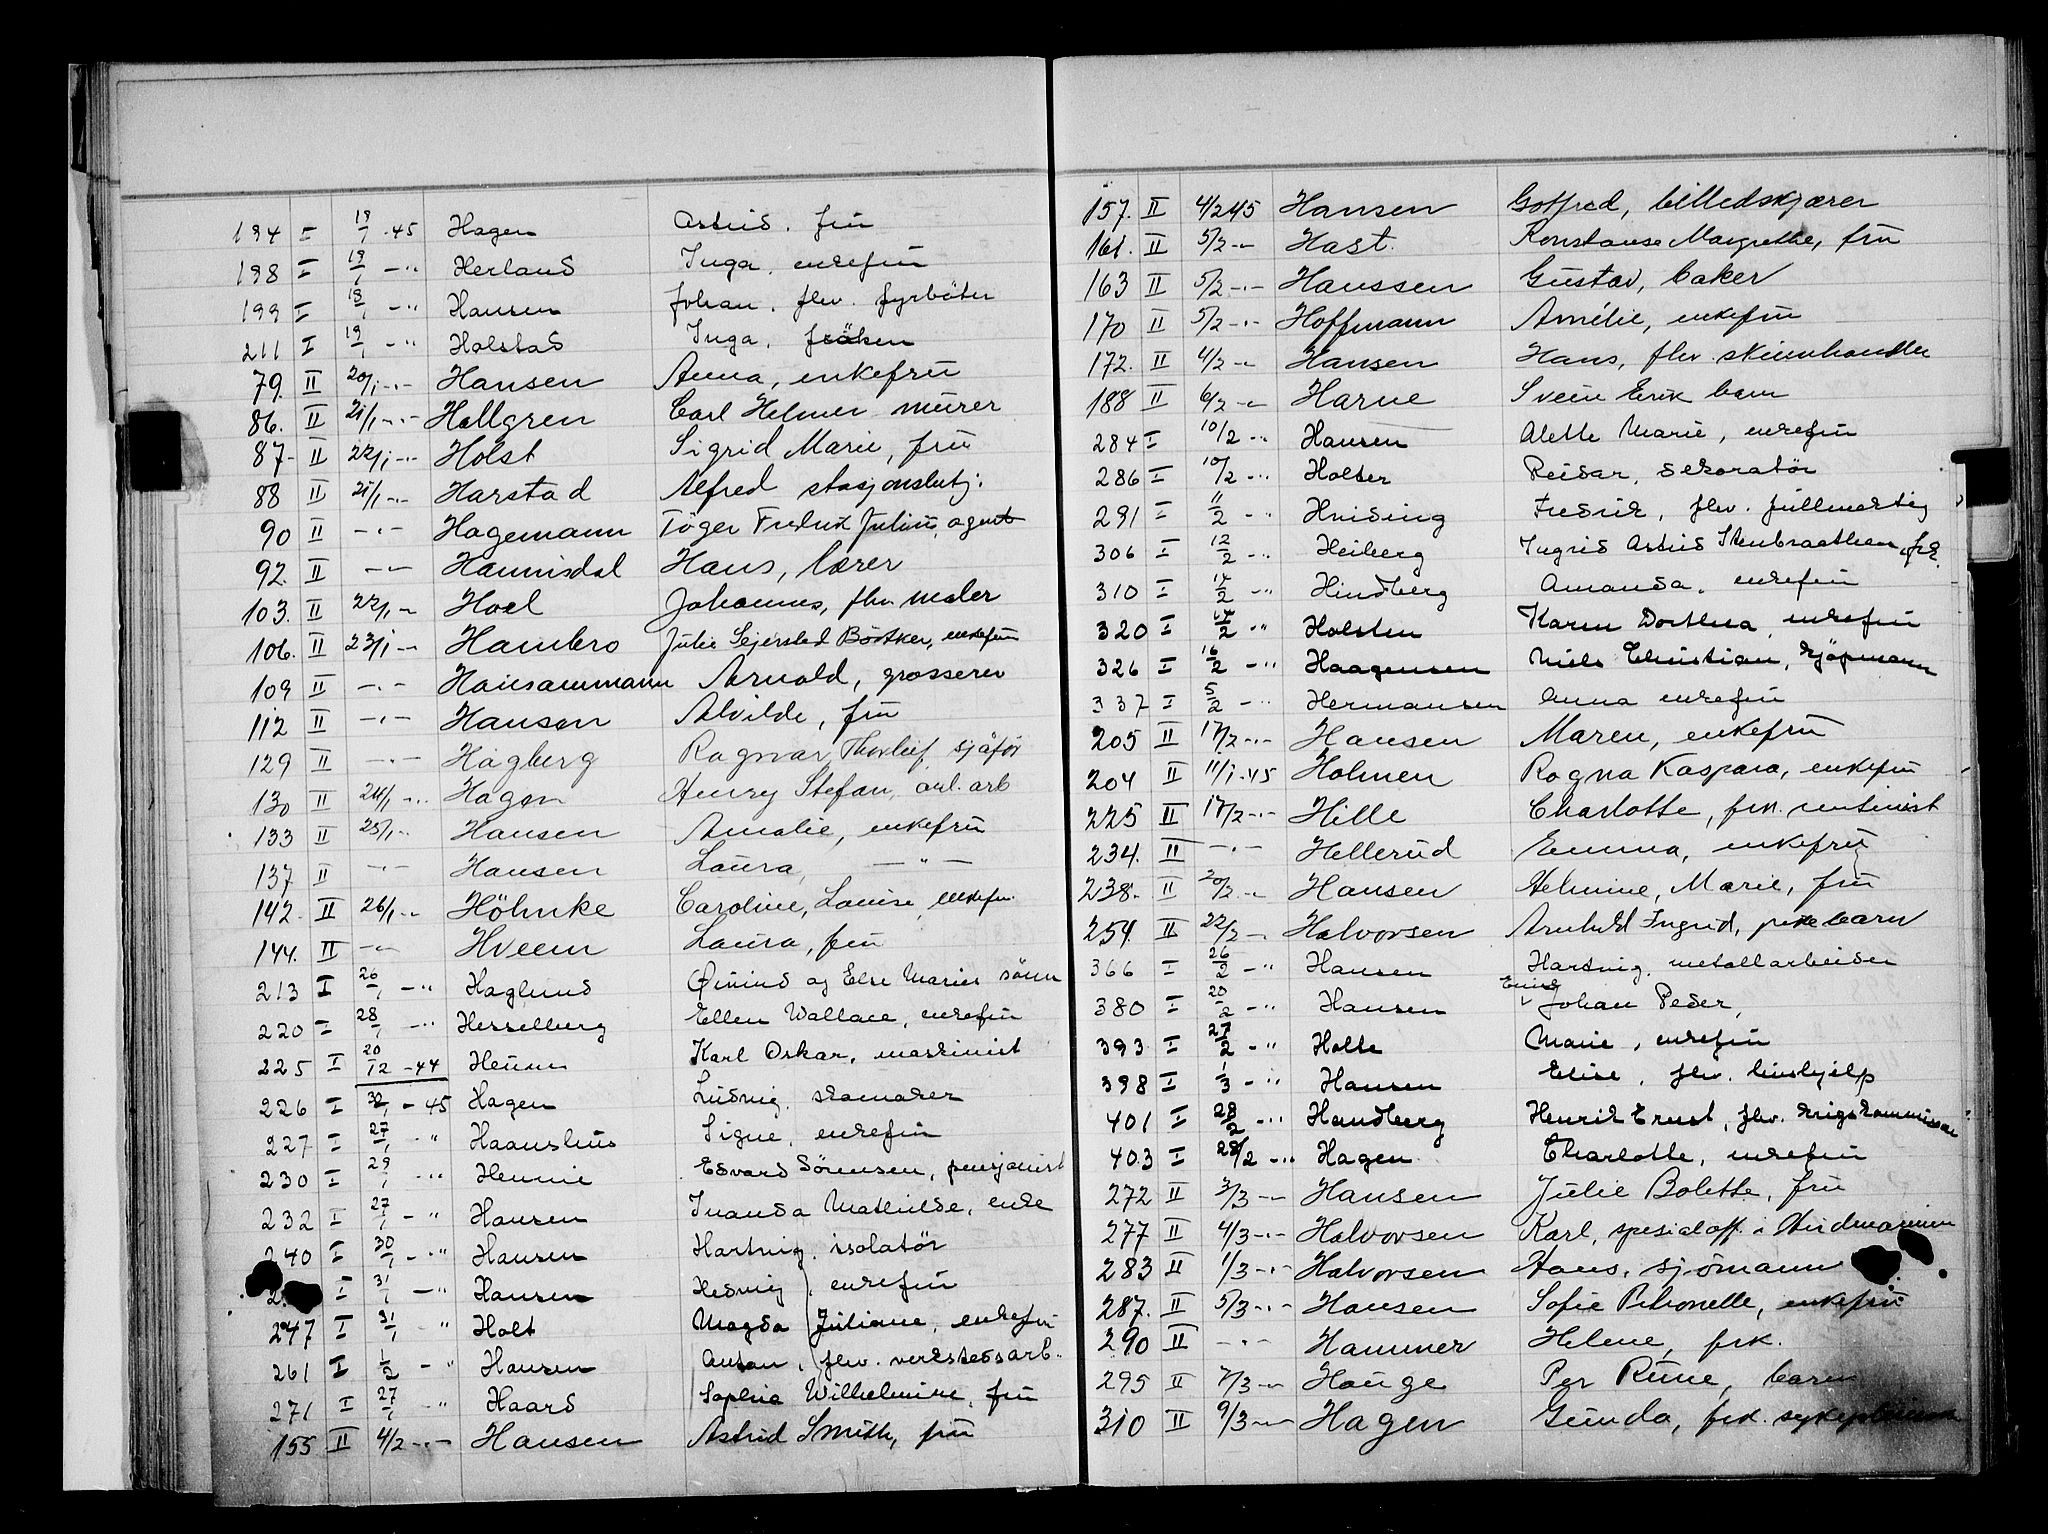 194 I 19/1 -45 Hagen Astrid, fru
198 I 19/1 -" Herland Inga, enkefru
199 I 18/1 -" Hansen Johan, fhv. fyrbøter
211 I 19/1 -" Holstad Inga, fröken
79. II 20/1 -"- Hansen Anna, enkefru
86. II 21/1 -"- Hallgren Carl Helmer murer
87- II 22/1 -"- Holst Sigrid Marie, fru
88 II 21/1 -"- Harstad Alfred stasjonsbetj.
90 II -"- Hagemann Töger Fredrik Julius, agent
92. II -"- Hannisdal Hans, lærer
103. II 22/1 -"- Hoel Johannes, fhv. maler
106. II 23/1 -"- Hambro Julie Sejersted Bödtker, enkefru
109 II -"- Hansammann Arnold, grosserer
112 II -"- Hansen Alvilde, fru
129 II -"- Hagberg Ragnar Thorleif sjåför
130 II 24/1 -"- Hagen Henry Stefan, arb. arb
133 II 25/1 -"- Hansen Amalie, enkefru
137 II -"- Hansen Laura, -"-
142. II 26/1 -"- Höhnke Caroline, Louise, enkefru
144. II -"- Hveem Laura, fru
213 I 26/1 -" Haglund Øivind og Else Maries sönn
220 I 28/1 -" Hesselberg Ellen Wallace, enkefru
225 I 20/12 -44 Heum Karl Oskar, maskinist
226 I 30/1 -45 Hagen Ludvig, skomaker
227 I 27/1 -" Haanshus Signe, enkefru
230 I 29/1 -" Hennie Edvard Sörensen, pensjonist
232 I 27/1 -" Hansen Inanda Mathilde, enke
240 I 30/1 -" Hansen Hartvig, isolatör
2 I 31/1 -" Hansen Hedvig, enkefru
247 I 31/1 -" Holt Magda Juliane, enkefru
261 I 1/2 -" Hansen Anton, fhv. verkstedsarb.
271 I 27/1 -" Haard Sophie Wilhelmine, fru
155 II 4/2 -"- Hansen Astrid Smith, fru
157. II 4/2 45 Hansen Gotfred, billedskjærer
161. II 5/2 -"- Hast. Konstanse Margrethe, fru
163 II 5/2 -"- Hanssen Gustav, baker
170 II 5/2 -"- Hoffmann Amélie, enkefru
172. II 4/2 -"- Hansen Hans, fhv. skinnhandler
188 II 6/2 -"- Harne Svein Erik barn
284 I 10/2 -" Hansen Alette Marie, enkefru
286 I 10/2 -" Holter Reidar, dekoratør
291 I 11/2 -" Hviding Fredrik, fhv. fullmektig
306 I 12/2 -" Heiberg Ingrid Astrid Stenbraathen, frk.
310 I 14/2 -" Hindberg Amanda, enkefru
320 I 14/2 -" Holsten Karen Dorthea, enkefru
326 I 16/2 -" Haagensen Niels Christian, kjöpmann
337 I 5/2 -" Hermansen Anna enkefru
205 II 17/2 -"- Hansen Maren, enkefru
204 II 11/1 -45 Holmen Ragna Kaspara, enkefru
225 II 17/2 -"- Hille Charlotte, frk. rentenist
234. II -"- Hellerud Emma, enkefru
238. II 20/2 -"- Hansen Helmine, Marie, fru
254. II 22/2 -"- Halvorsen Arnhild Ingrid, pikebarn
366 I 26/2 -" Hansen Hartvig, metallarbeider
380 I 20/2 -" Hansen Einar Johan Peder,
393 I 27/2 -" Holte Marie, enkefru
398 I 1/3 -" Hansen Elise, fhv. hushjelp
401 I 28/2 -" Handberg Henrik Ernst, fhv. krigskommissær
403 I 28/2 -" Hagen Charlotte, enkefru
272 II 3/3 -"- Hansen Julie Bolette, fru
277 II 4/3 -"- Halvorsen Karl, spesialoff. i Hirdmarinen
283 II 1/3 -"- Halvorsen Hans, sjömann
287. II 5/3 -"- Hansen Sofie Petronelle, enkefru
290 II -"- Hammer Helene, frk.
295 II 7/3 -"- Hauge Per Rune, barn
310 II 9/3 -"- Hagen Gunda, frk. sykepleierske